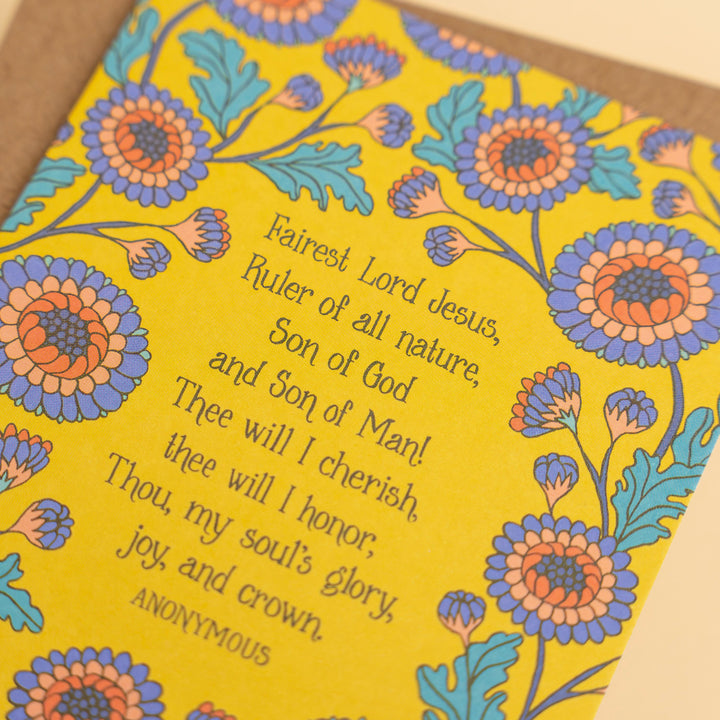 Fairest Lord Jesus,
Ruler of all nature,
Son of God
and Son of Man!
Thee will I cherish,
thee will I honor,
Thou, my soul's glory,
joy, and crown.
ANONYMOUS